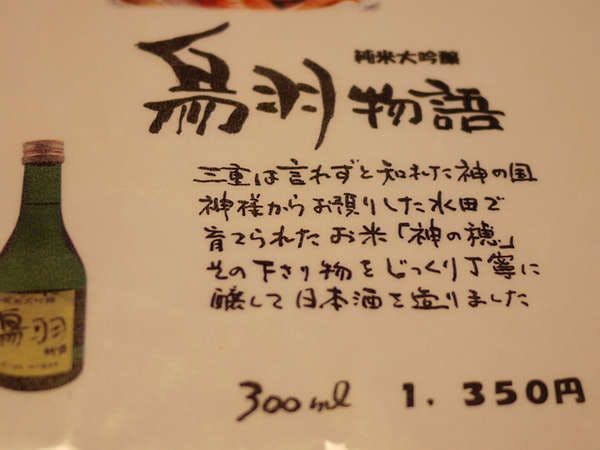 純米大吟醸
鳥羽物語
三重は言わずと知れた神の国
神様からお預りした水田で
育てられたお米「神の穂」
その下さり物をじっくり丁寧に
醸して日本酒を造りました
300ml 1.350円
鳥羽